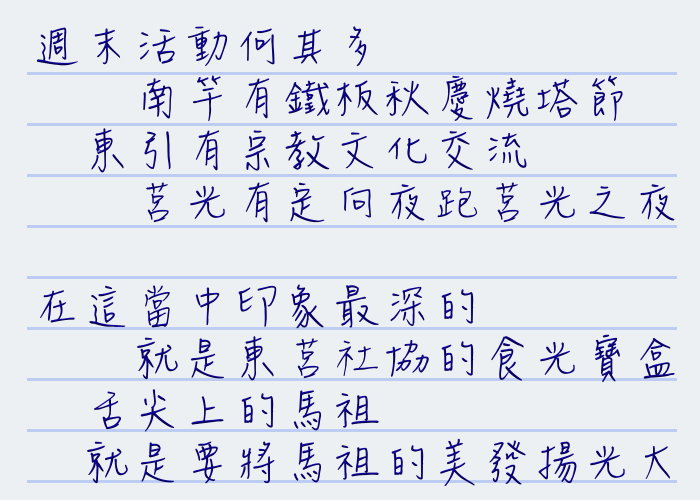 週末活動何其多
南竿有鐵板秋慶燒塔節
東引有宗教文化交流
莒光有定向夜跑莒光之夜
在這當中印象最深的
就是東莒社協的食光寶盒
舌尖上的馬祖
就是要將馬祖的美發揚光大